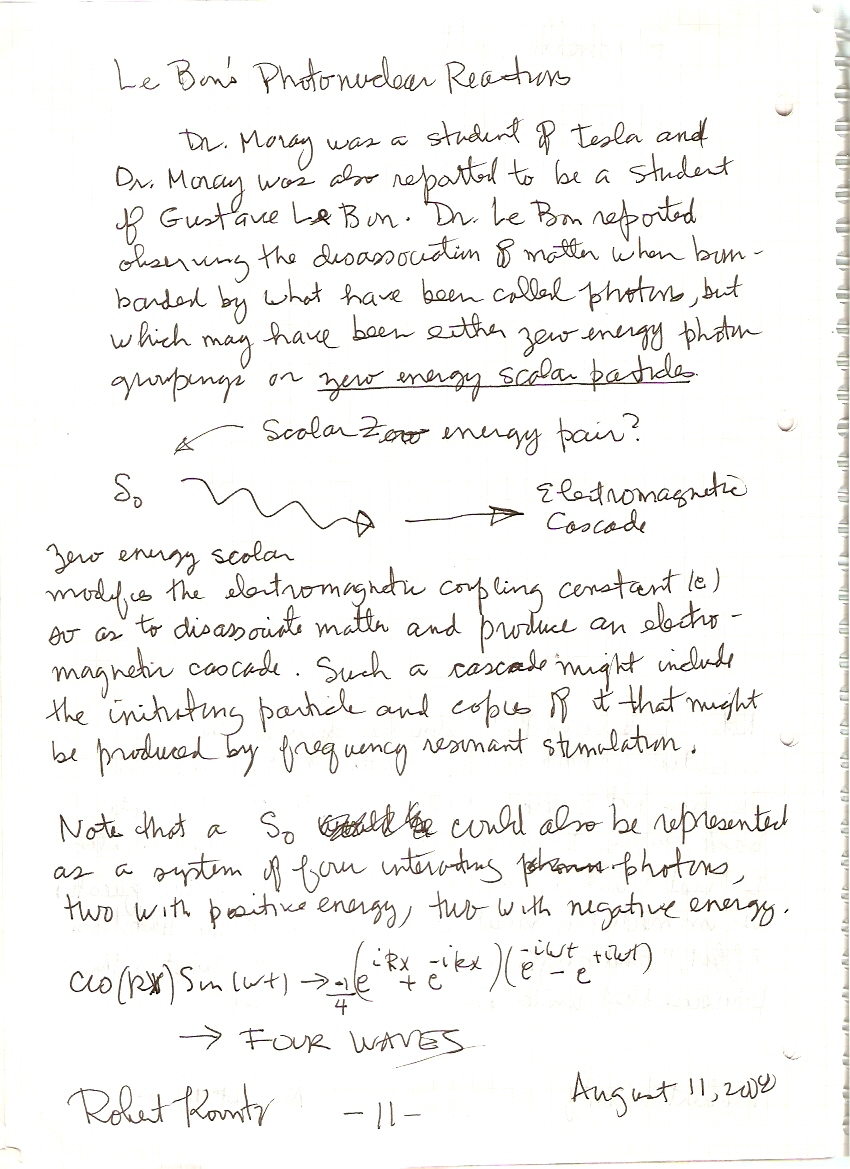 Le Bon's Photonuclear Reactions
Dr. Moray was a student of Tesla and
Dr. Moray was also reported to be a student
of Gustave Le Bon. Dr. Le Bon reported
observing the disassociation of matter when bom-
barded by what have been called photons, but
which may have been either zero energy photon
groupings or zero energy scalar particles.
Scalar Zero energy pair?
S₀
Electromagnetic
Cascade
zero energy scalar
modifies the electromagnetic coupling constant (e)
so as to disassociate matter and produce an electro-
magnetic cascade. Such a cascade might include
the initiating particle and copies of it that might
be produced by frequency resonant stimulation.
Note that a S₀ could also be represented
as a system of four interacting photons,
two with positive energy, two with negative energy.
Cos(kx) Sin(wt) → -1/4 (e^{ikx} + e^{-ikx})(e^{-iwt} - e^{+iwt})
→ FOUR WAVES
Robert Kountz
-11-
August 11,